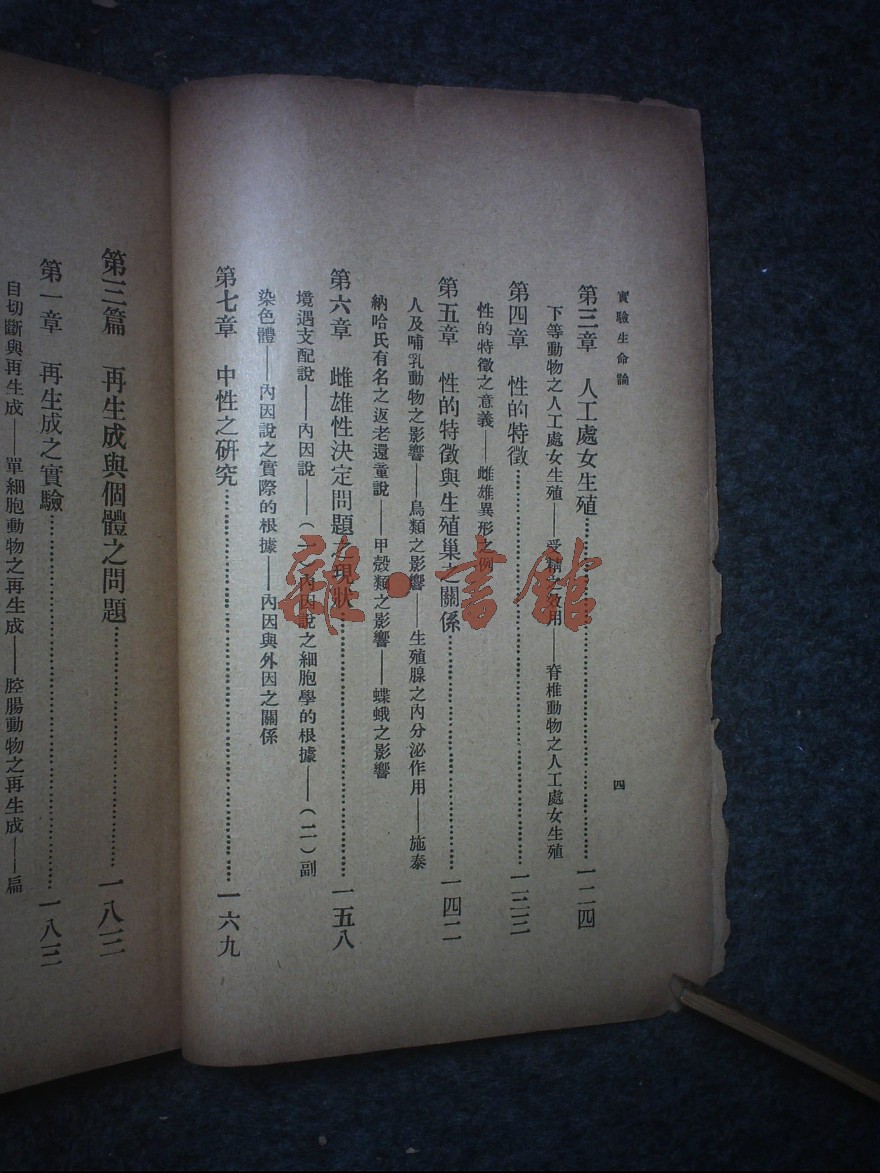 實驗生命論
四
第三章 人工處女生殖……一二四
下等動物之人工處女生殖——受精之效用——脊椎動物之人工處女生殖
第四章 性的特徵……一三三
性的特徵之意義——雌雄異形之例
第五章 性的特徵與生殖巢之關係……一四二
人及哺乳動物之影響——鳥類之影響——生殖腺之內分泌作用——施泰
納哈氏有名之返老還童說——甲殼類之影響——蝶蛾之影響
第六章 雌雄性決定問題之現狀……一五八
境遇支配說——內因說——(一)內因說之細胞學的根據——(二)副
染色體——內因說之實際的根據——內因與外因之關係
第七章 中性之研究……一六九
第三篇 再生成與個體之問題……一八三
第一章 再生成之實驗……一八三
自切斷與再生成——單細胞動物之再生成——腔腸動物之再生成——扁
雜·書館